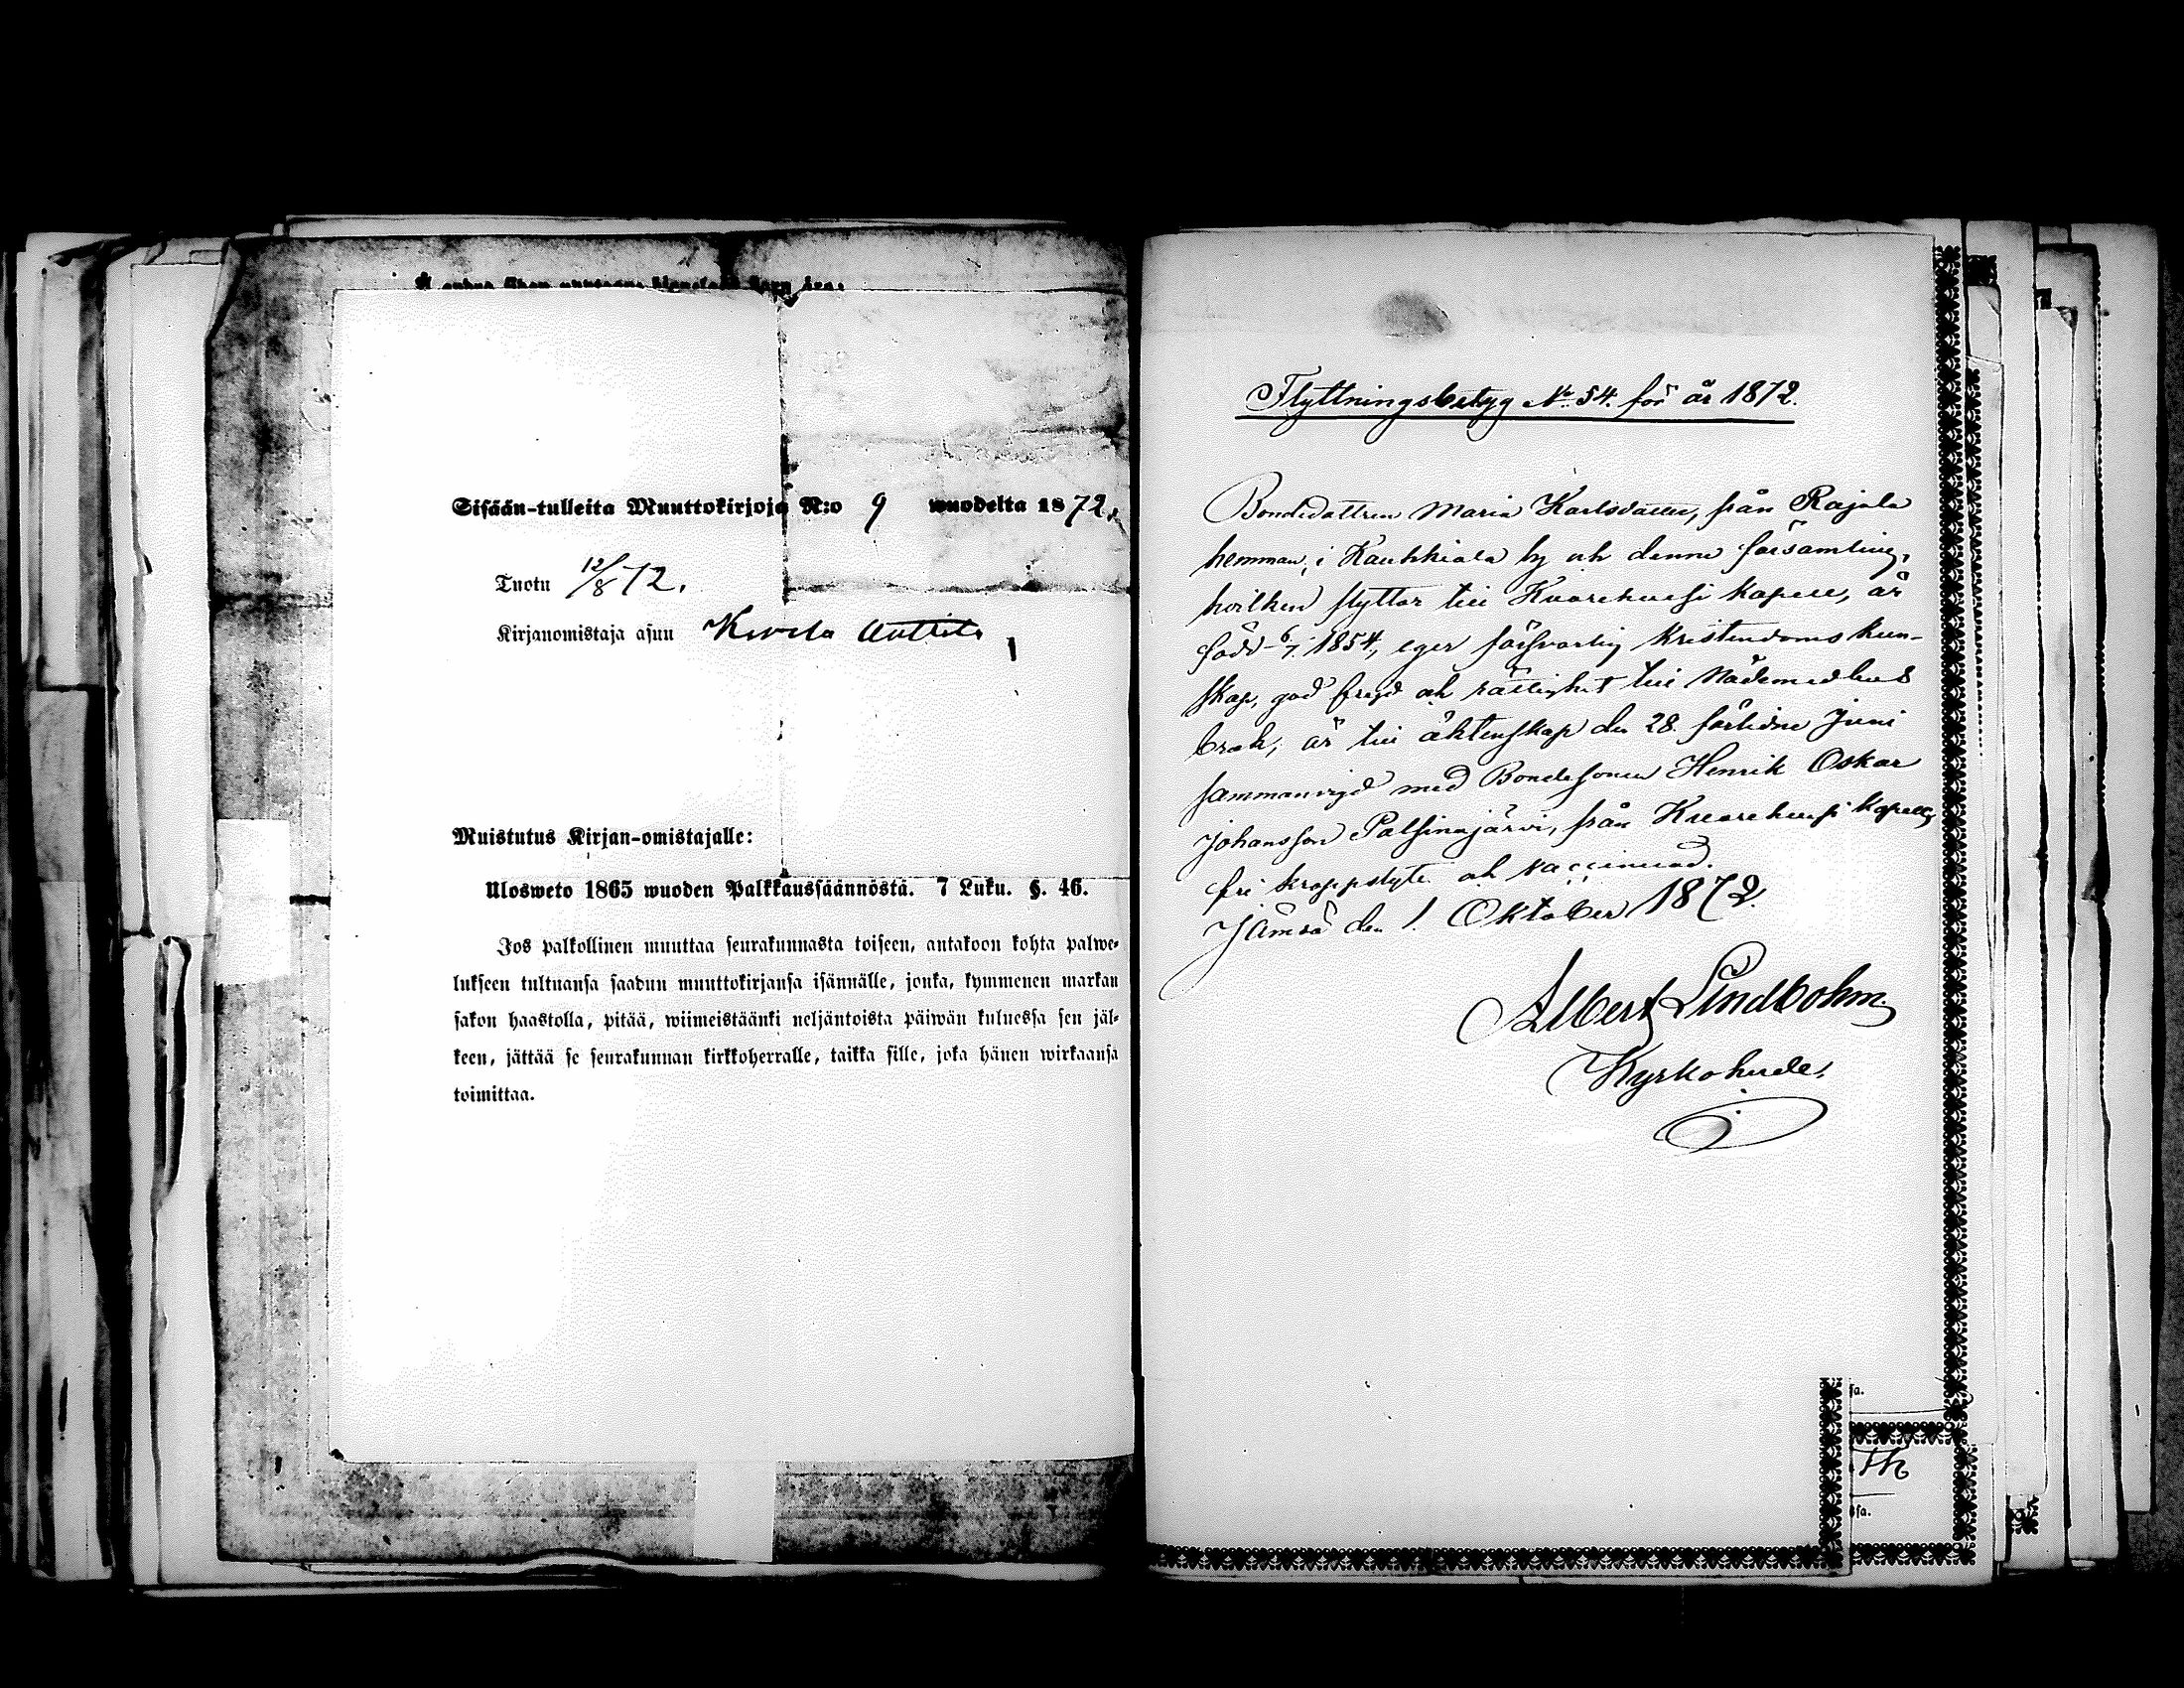 Sisään-tulleita Muuttokirjoja N:o 9 wuodelta 1872.
Tuotu 12/8 72.
Kirjanomistaja asuu
Muistutus Kirjan-omistajalle:
Ulosweto 1865 wuoden Palkkaussäännöstä. 7 Luku. §. 46.
Jos palkollinen muuttaa seurakunnasta toiseen, antakoon kohta palwe-
lukseen tultuansa saadun muuttokirjansa isännälle, jonka, kymmenen markan
sakon haastolla, pitää, wiimeistäänki neljäntoista päiwän kuluessa sen jäl-
keen, jättää se seurakunnan kirkkoherralle, taikka sille, joka hänen wirkaansa
toimittaa.
Flyttningsbetyg No 54. för år 1872.
Bondedottren Maria Karlsdotter, från Rajala
hemman, i Kauhkiala by och denna församling,
hvilken flyttar till Kuorehvesi Kapell, är
född 6/7. 1854, eger försvarlig kristendoms kun-
skap, god frejd och rättighet till Nådemedlens
bruk, är till äktenskap den 28. förlidne Juni
sammanvigd med Bondesonen Henrik Oskar
Johansson Palsinajärvi, från Kuorehvesi kapell,
fri kroppslyte och vaccinerad.
Jämsä den 1. Oktober 1872.
Albert Lindbohm
Kyrkoherde.
sa.
sa.